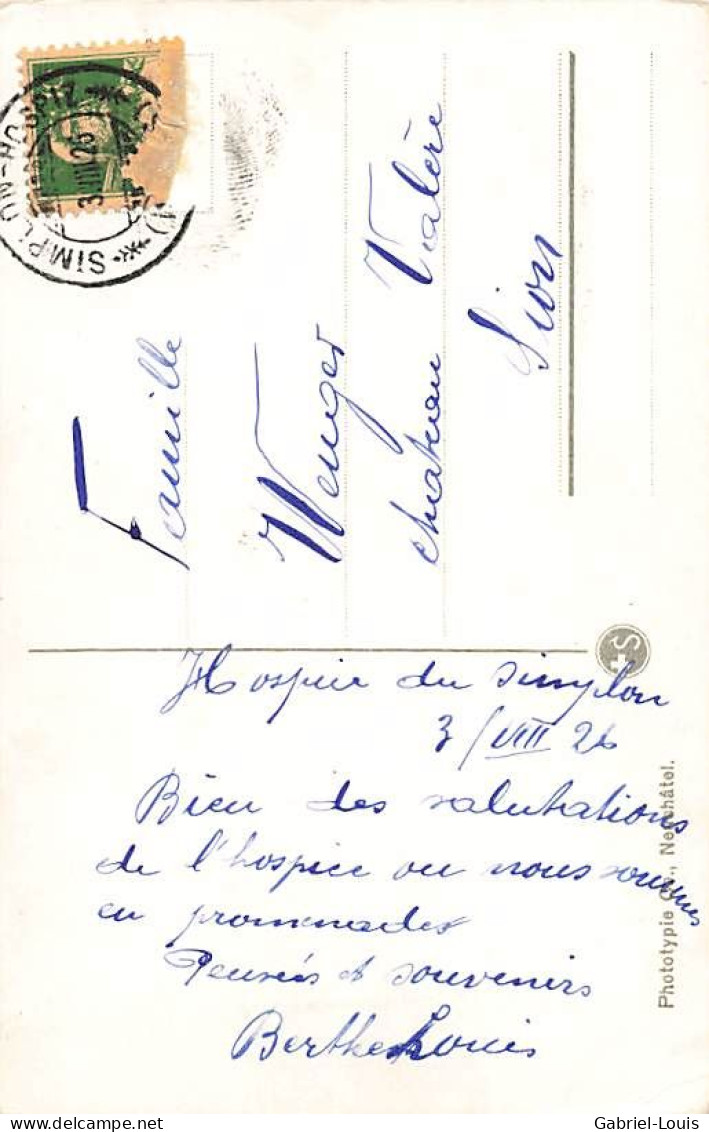 SIMPLON-HOSPIZ
3.VIII.26
Famille
Wenger
château Valère
Sion
S
Hospice du Simplon
3/VIII 26
Bien des salutations
de l'hospice ou nous sommes
en promenades
Pensées et souvenirs
Berthe Louis
Phototypie Co., Neuchâtel.
Gabriel-Louis